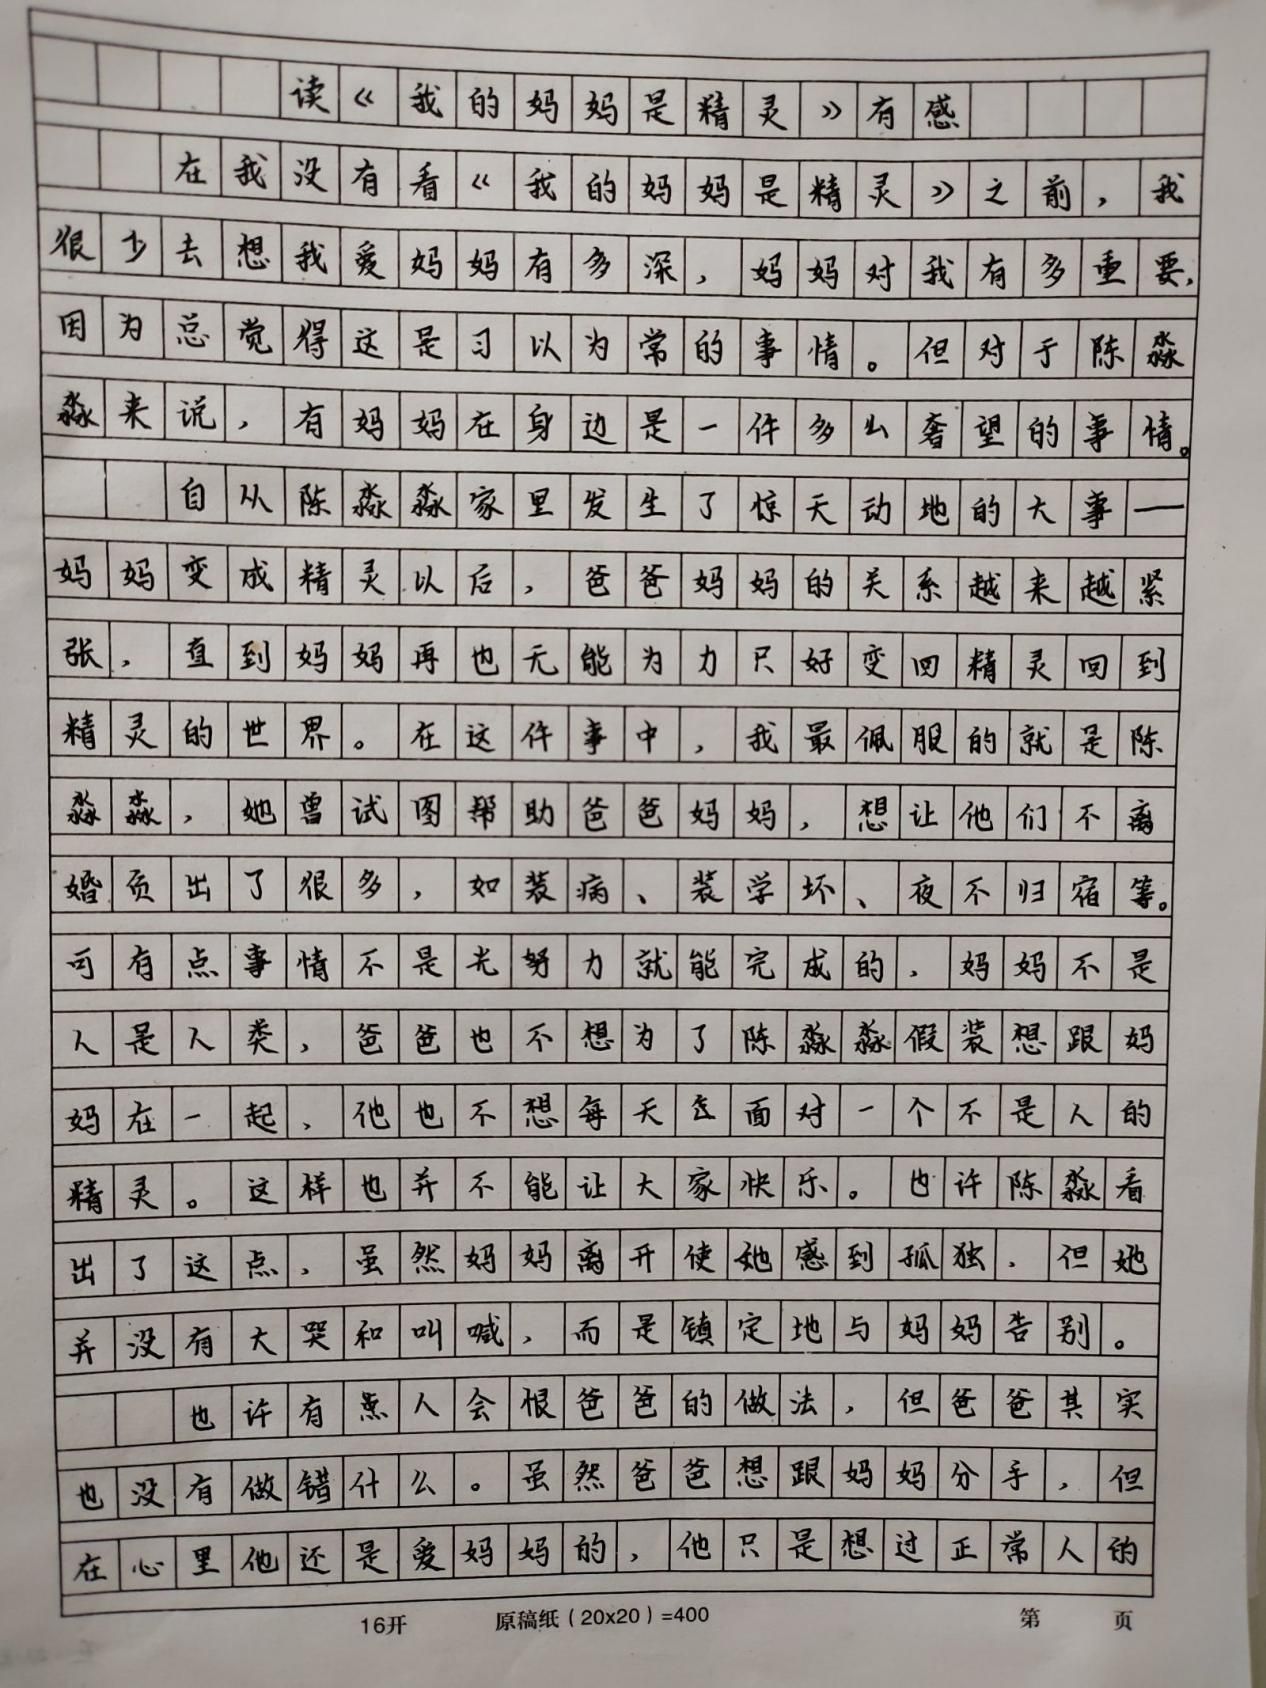 读《我的妈妈是精灵》有感
在我没有看《我的妈妈是精灵》之前，我
很少去想我爱妈妈有多深，妈妈对我有多重要，
因为总觉得这是习以为常的事情。但对于陈淼
淼来说，有妈妈在身边是一件多么奢望的事情。
自从陈淼淼家里发生了惊天动地的大事——
妈妈变成精灵以后，爸爸妈妈的关系越来越紧
张，直到妈妈再也无能为力只好变回精灵回到
精灵的世界。在这件事中，我最佩服的就是陈
淼淼，她曾试图帮助爸爸妈妈，想让他们不离
婚负出了很多，如装病、装学坏、夜不归宿等。
可有点事情不是光努力就能完成的，妈妈不是
人是人类，爸爸也不想为了陈淼淼假装想跟妈
妈在一起，他也不想每天去面对一个不是人的
精灵。这样也并不能让大家快乐。也许陈淼看
出了这点，虽然妈妈离开使她感到孤独，但她
并没有大哭和叫喊，而是镇定地与妈妈告别。
也许有点人会恨爸爸的做法，但爸爸其实
也没有做错什么。虽然爸爸想跟妈妈分手，但
在心里他还是爱妈妈的，他只是想过正常人的
16开 原稿纸（20x20）=400 第 页